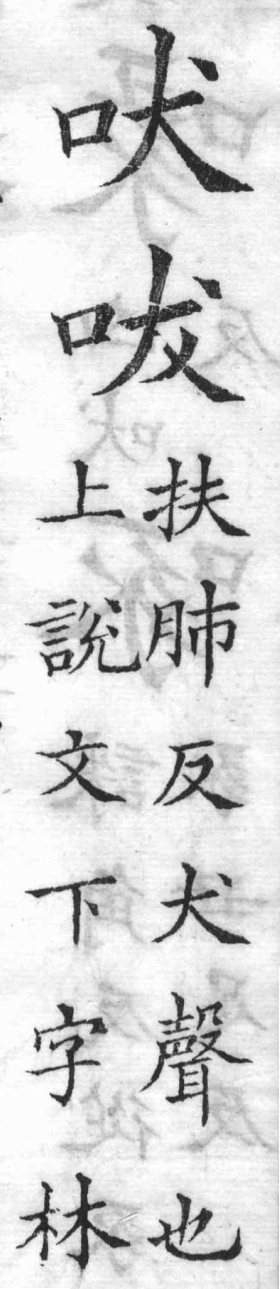 吠
㕹
扶肺反犬聲也
上說文下字林